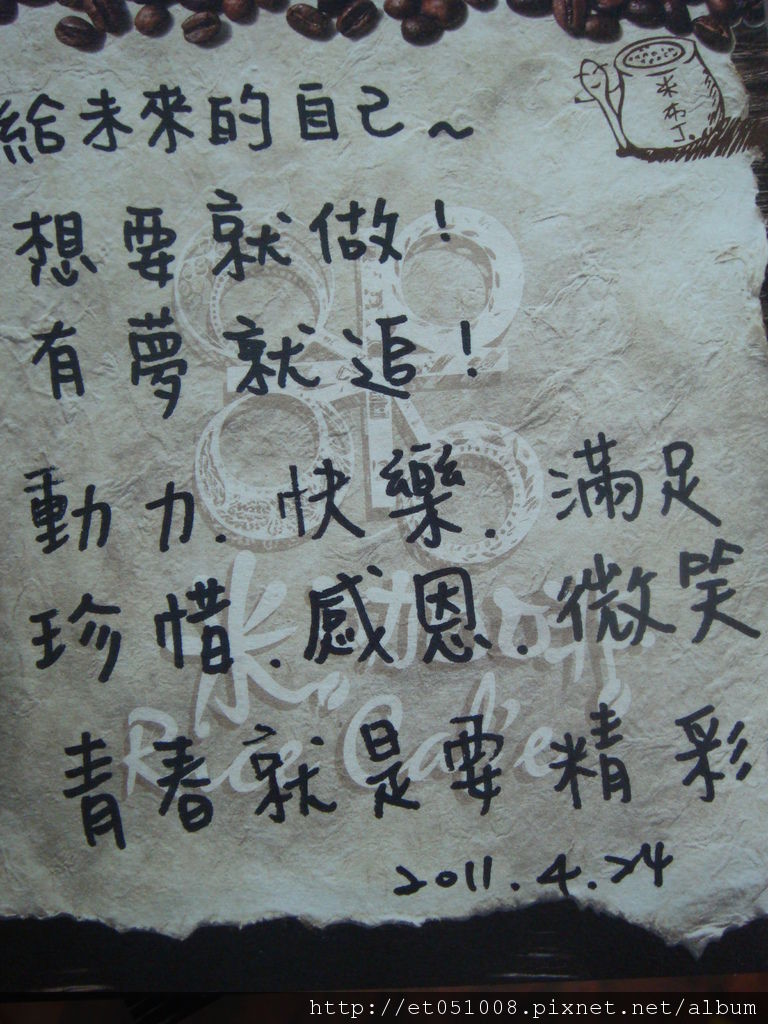 給未來的自己~
米布丁.
想要就做!
有夢就追!
動力.快樂.滿足
珍惜.感恩.微笑
米.咖啡
Rice Caf'e
青春就是要精彩
2011.4.24
http://et051008.pixnet.net/album